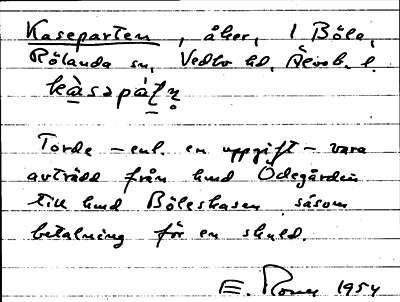 Kaseparten, åker, 1 Böle,
Rölanda sn, Vedbo hd, Älvsb. l.
kàsapát̠n̥
Torde – enl. en uppgift – vara
avträdd från hmd Ödegården
till hmd Böleskasen såsom
betalning för en skuld.
E. 1954